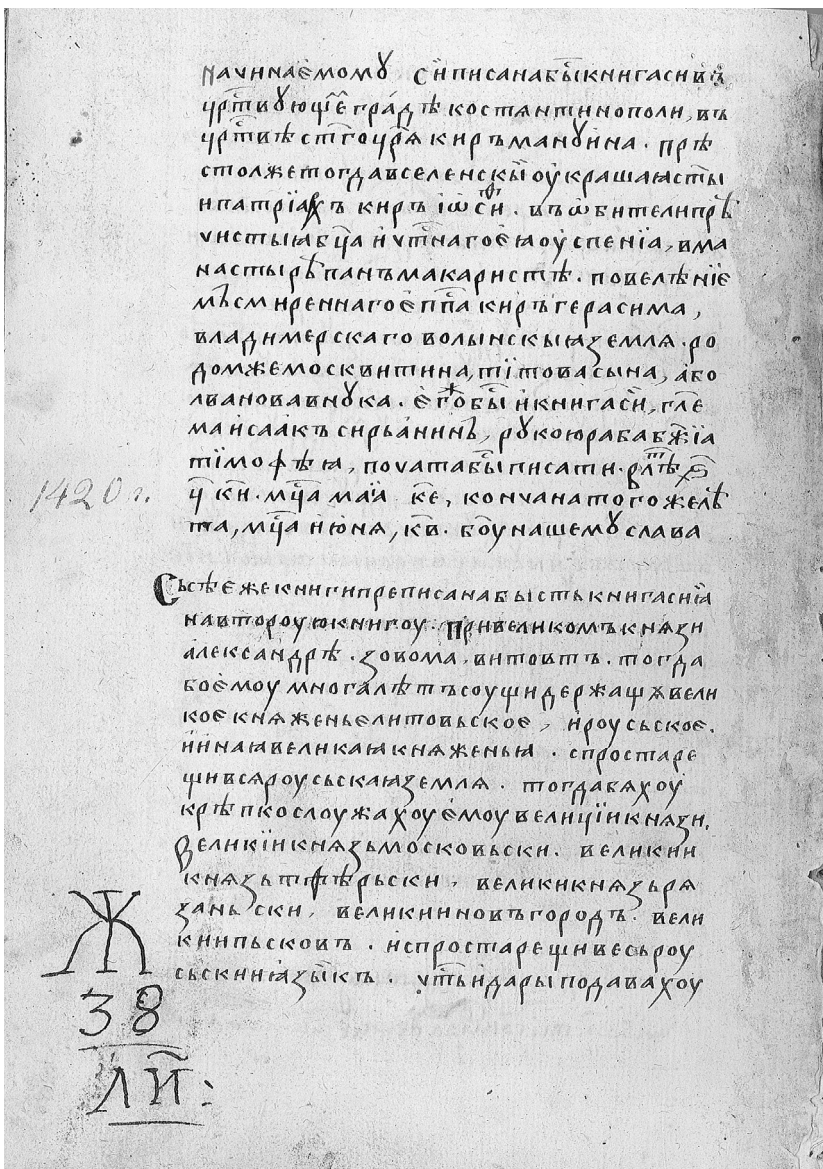 начинаемомꙋ сиписанабы҃книгасивъ
цр҃твꙋющ҃еградѣкостянтинополи, въ
цр҃твѣст҃гоцр҃якиръманꙋина · прѣ
столжетогдавселенскыоукрашаюсты
ипатріархъ киръ іѡси҃ф · въѡбителипрѣ
чистыꙗбц҃а ичт҃нагоеꙗоуспеніа, вма
настырѣпанъмакаристѣ · повелѣніе
мъсмиреннагоеп҃па киръгерасима,
владимерскаго волынскыꙗземля · ро
домжемосквитина, тітовасына, або
ливановавнꙋка · егожобы҃икнигаси, гл҃е
маисаакъсирьанинъ, рꙋкоюрабабж҃іа
тімофѣꙗ, початабы҃писати · влѣт ҂ѕ҃
ц҃ к҃и · мц҃а маіа к҃е, кончанатогожелѣ
та, мц҃а июня, к҃в · бо҃унашемꙋслава
Съсѣежекнигипреписанабыстькнигасиіа
навторꙋюкнигоу · привеликомъкнязи
александрѣ · зовома, витовтъ · тогда
боемоумногалѣтъсоущидержащꙗвели
коекняженьелитовьское, ироусьское.
ииннаꙗвеликаꙗкняженьꙗ · спростаре
щивсяроусьскаꙗземля · тогдабяхоу
крѣпкослоужахоуемоувеличіикнязи.
великіикнязьмосковьски. великии
князьтфѣрьски, великикнязьря
заньски, великииновъгородъ · вели
киипьсковъ · испростарещивесьроу
сьскииꙗзыкъ · чт҃ьидарыподавахоу
1420 г.
Ж
38
ЛИ҃: